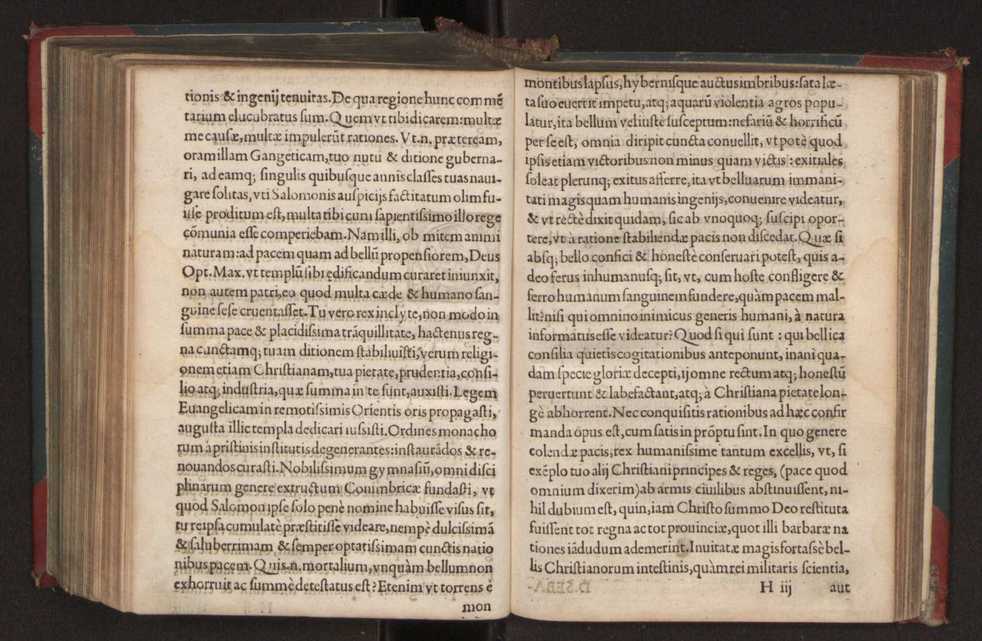 tionis & ingenij tenuitas. De qua regione hunc commẽ
tarium elucubratus sum. Quem vt tibi dicarem: multæ
me causæ, multæ impulerũt rationes. Vt.n. præteream,
oram illam Gangeticam, tuo nutu & ditione guberna-
ri, ad eamq; singulis quibusque annis classes tuas naui-
gare solitas, vti Salomonis auspicijs factitatum olim fu-
isse proditum est, multa tibi cum sapientissimo illo rege
cõmunia esse comperiebam. Nam illi, ob mitem animi
naturam: ad pacem quam ad bellũ propensiorem, Deus
Opt. Max. vt templũ sibi ędificandum curaret iniunxit,
non autem patri, eo quod multa cæde & humano san-
guine sese cruentasset. Tu vero rex inclyte, non modo in
summa pace & placidissima trãquillitate, hactenus reg-
na cunctamq; tuam ditionem stabiluisti, verum religi-
onem etiam Christianam, tua pietate, prudentia, consi-
lio atq; industria, quæ summa in te sunt, auxisti. Legem
Euangelicam in remotissimis Orientis oris propagasti,
augusta illic templa dedicari iussisti. Ordines monacho
rum a pristinis institutis degenerantes: instaurãdos & re-
nouandos curasti. Nobilissimum gymnasiũ, omni disci
plinarum genere extructum Conimbricæ fundasti, vt
quod Salomon ipse solo penè nomine habuisse visus sit,
tu reipsa cumulatè præstitisse videare, nempè dulcissimã
& saluberrimam & semper optatissimam cunctis natio
nibus pacem. Quis.n. mortalium, vnquàm bellum non
exhorruit ac summè detestatus est? Etenim vt torrens è
mon
montibus lapsus, hybernisque auctus imbribus: sata læ-
ta suo euertit impetu, atq; aquarũ violentia agros popu-
latur, ita bellum vel iustè susceptum: nefariũ & horrificũ
per se est, omnia diripit cuncta conuellit, vt potè quod
ipsis etiam victoribus non minus quam victis: exitiales
soleat plerunq; exitus afferre, ita vt belluarum immani-
tati magis quam humanis ingenijs, conuenire videatur,
& vt rectè dixit quidam, sic ab vnoquoq; suscipi opor-
tere, vt à ratione stabiliendæ pacis non discedat. Quæ si
absq; bello confici & honestè conseruari potest, quis a-
deo ferus inhumanusq; sit, vt, cum hoste confligere &
ferro humanum sanguinem fundere, quàm pacem mal-
lit? nisi qui omnino inimicus generis humani, à natura
informatus esse videatur? Quod si qui sunt: qui bellica
consilia quietis cogitationibus anteponunt, inani qua-
dam specie gloriæ decepti, ij omne rectum atq; honestũ
peruertunt & labefactant, atq; à Christiana pietate lon-
gè abhorrent. Nec conquisitis rationibus ad hæc confir
manda opus est, cum satis in prõptu sint. In quo genere
colendæ pacis, rex humanissime tantum excellis, vt, si
exẽplo tuo alij Christiani principes & reges, (pace quod
omnium dixerim) ab armis ciuilibus abstinuissent, ni-
hil dubium est, quin, iam Christo summo Deo restituta
fuissent tot regna ac tot prouinciæ, quot illi barbaræ na
tiones iãdudum ademerint. Inuitatæ magis fortassè bel-
lis Christianorum intestinis, quàm rei militaris scientia,
H iij aut